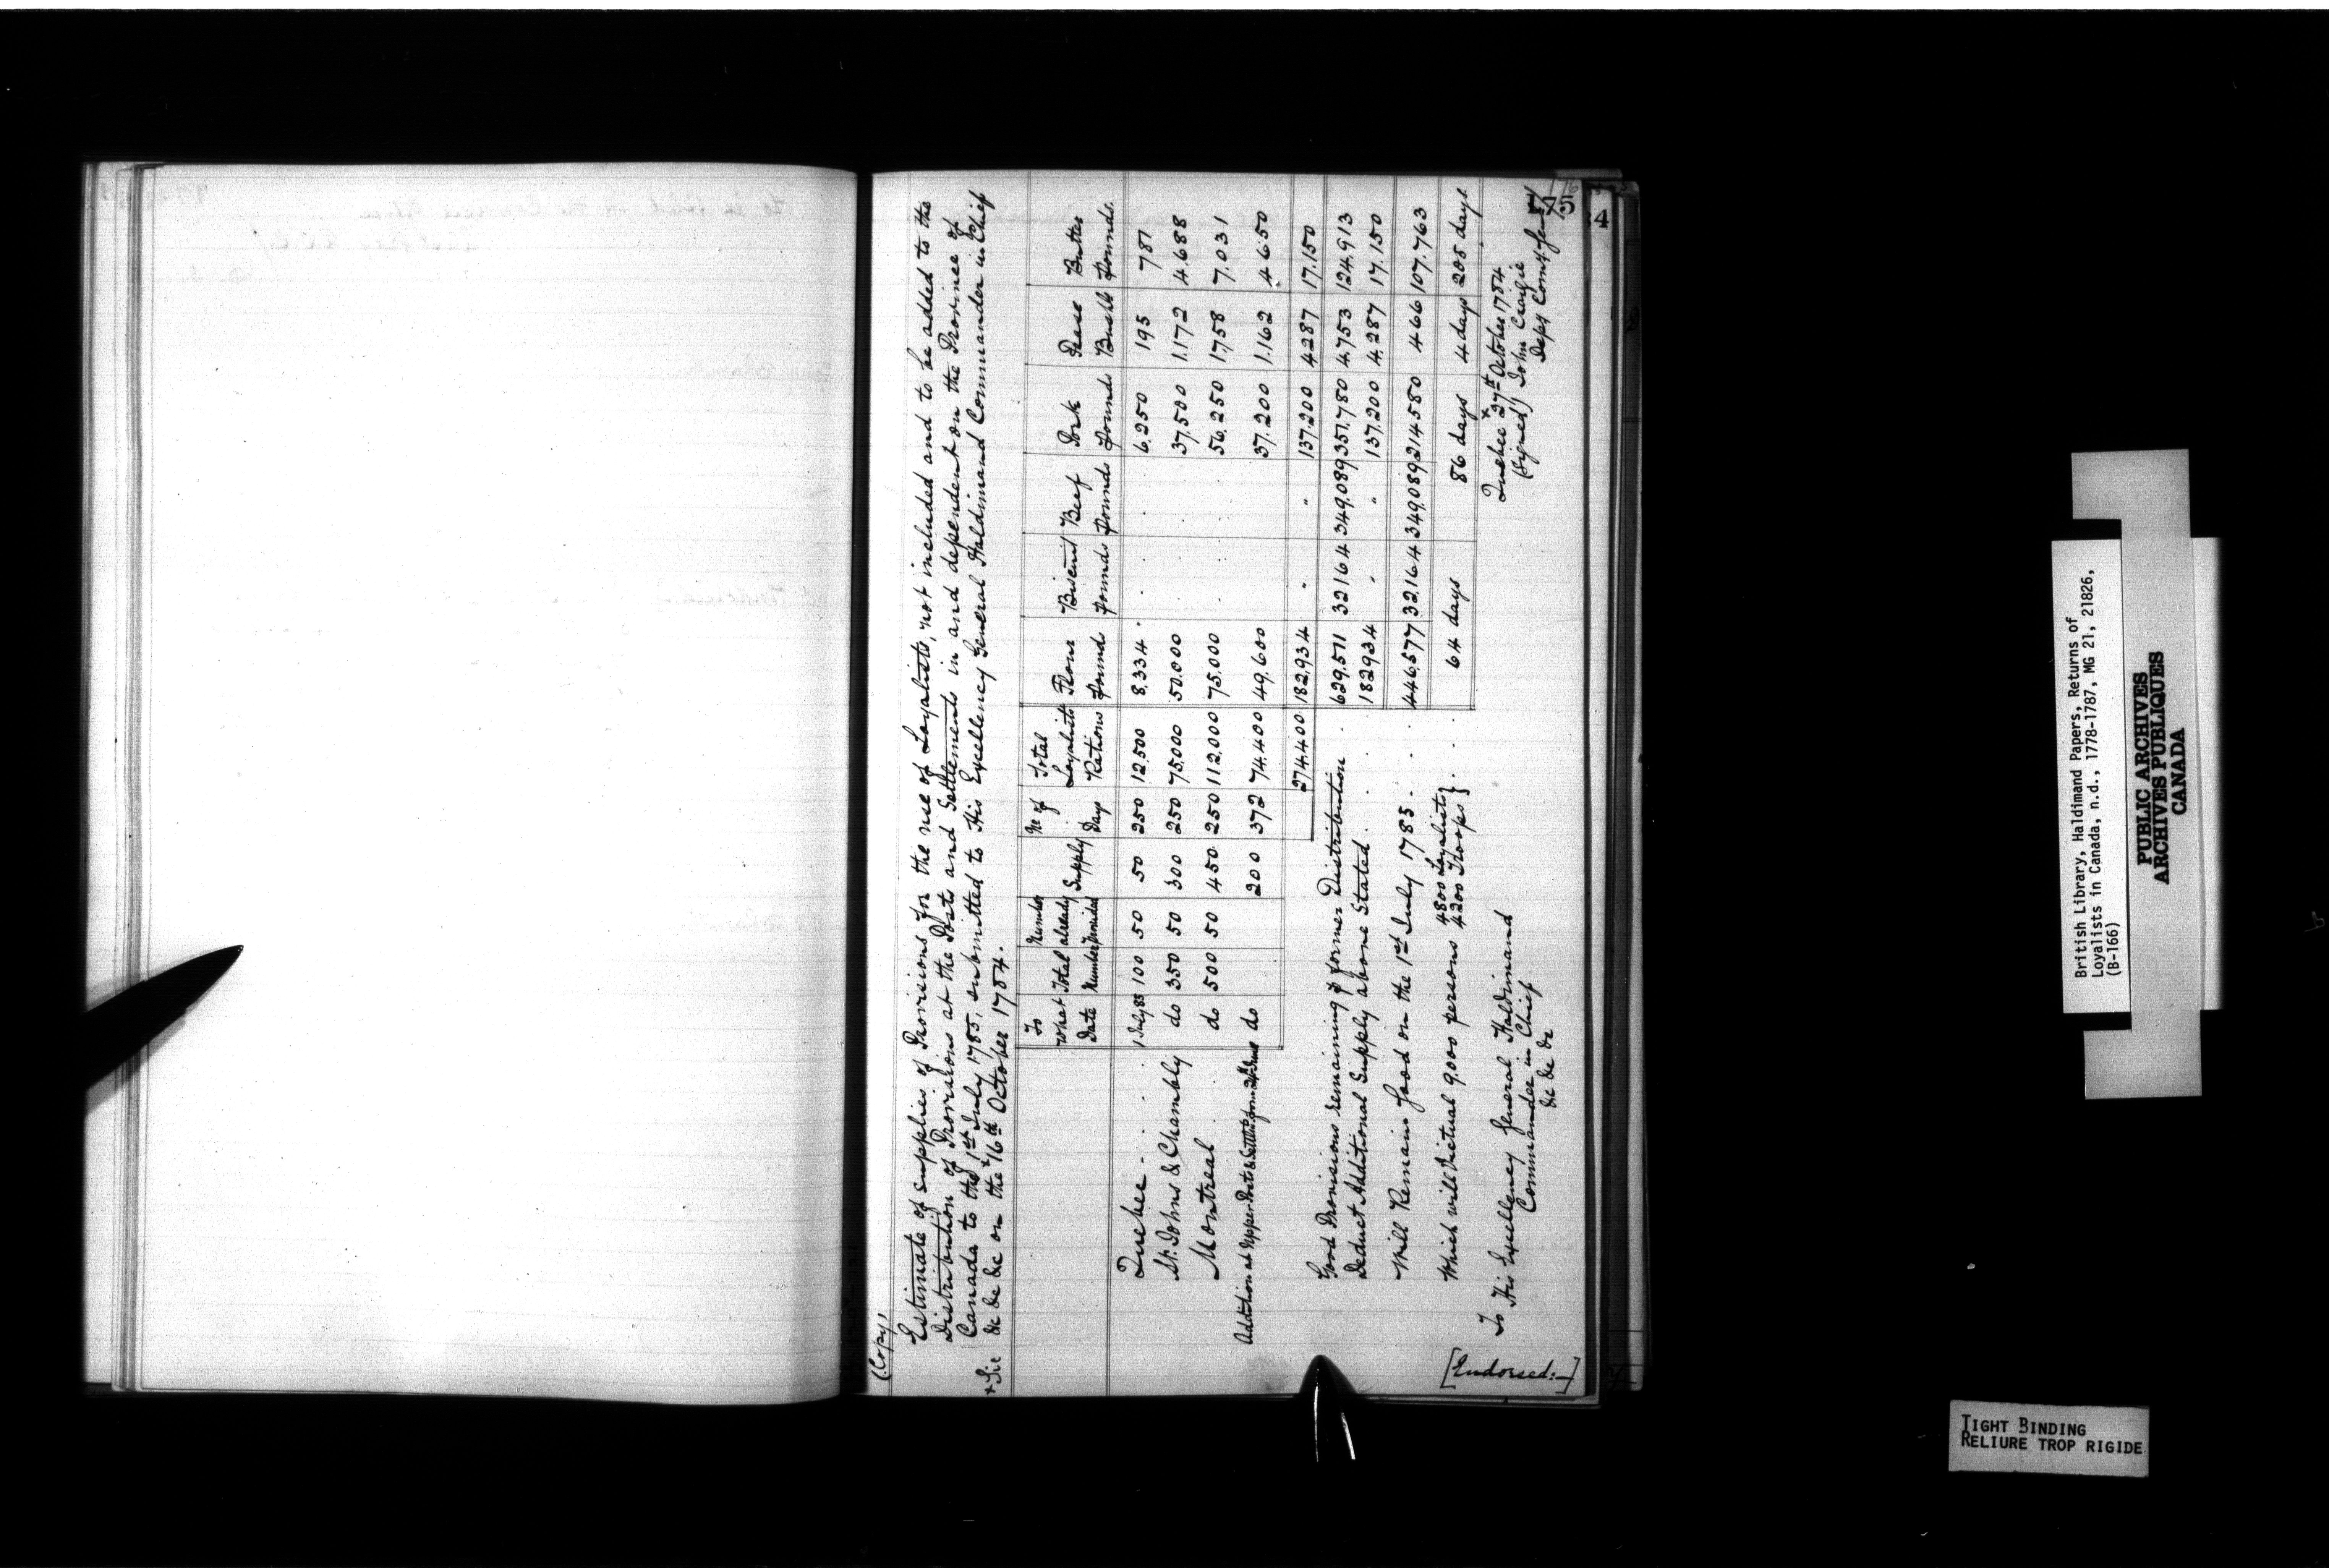 (Copy)
Estimate of supplies of Provisions for the use of Loyalists, not included and to be added to the
Distribution of Provisions at the Posts and Settlements in and dependent on the Province of
Canada to the 1st July 1785, submitted to His Excellency General Haldimand Commander in Chief
* Sic &c &c &c on the *16th October 1784.
To What Date | Total Number | Number already Provided | Supply | No of Days | Total Loyalists Rations | Flour Pounds | Biscuit Pounds | Beef Pounds | Pork Pounds | Pease Bushls | Butter Pounds.
Quebec - . . . 1 July 85 100 50 50 250 12,500 8,334 . . 6,250 195 781
St. Johns & Chambly do 350 50 300 250 75,000 50,000 . . 37,500 1,172 4,688
Montreal do 500 50 450 250 112,000 75,000 . . 56,250 1,758 7,031
Addition at Upper Posts & Settlts from 24th June do 200 372 74,400 49,600 37,200 1,162 4,650
274,400 182,934 " " 137,200 4287 17,150
Good Provisions remaining for former Distribution 629,511 32164 349,089 351,780 4,753 124,913
Deduct Additional Supply above Stated . . . . 182934 " " 137,200 4,287 17,150
Will Remain Good on the 1st July 1785 - . . . 446,577 32,164 349,089 214,580 466 107,763
Which will Victual 9,000 persons 4800 Loyalists
4200 Troops } . . 64 days 86 days 4 days 205 days
Quebec *27th October 1784
(Signed) John Craigie
Depy Comy Genl
To His Excellency General Haldimand
Commander in Chief
&c &c &c
[Endorsed:-]
176
175
34
British Library, Haldimand Papers, Returns of
Loyalists in Canada, n.d., 1778-1787, MG 21, 21826,
(B-166)
PUBLIC ARCHIVES
ARCHIVES PUBLIQUES
CANADA
TIGHT BINDING
RELIURE TROP RIGIDE